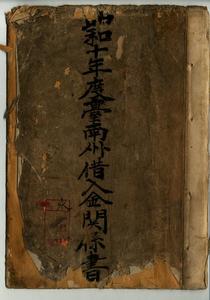 昭和十年度臺南州借入金關係書
永